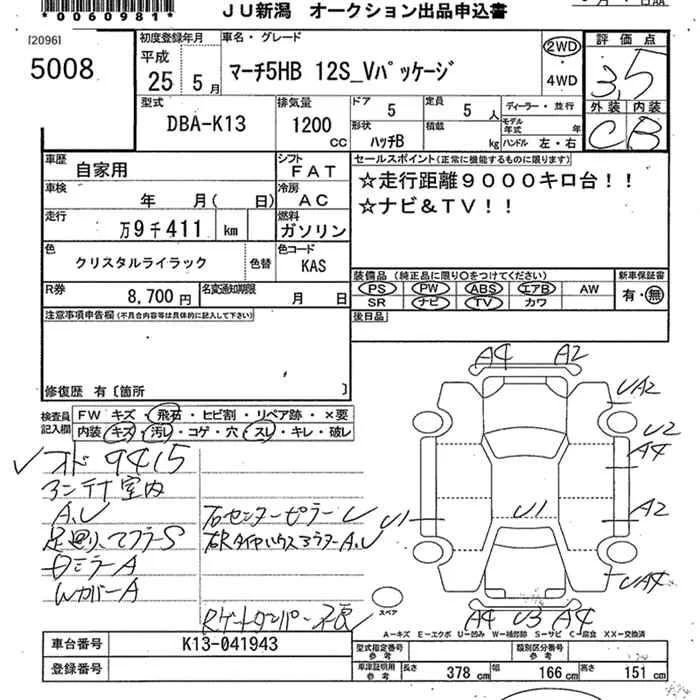 *0060981*
JU新潟 オークション出品申込書
[2096]
5008
初度登録年月
平成
25 5月
車名・グレード
マーチ5HB 12S_Vパッケージ
2WD
・
4WD
評価点
3.5
外装 内装
C B
型式
DBA-K13
排気量
1200 CC
ドア
5
定員
5人
形状
ハッチB
積載
kg
ディーラー・並行
モデル年式 年
ハンドル 左・右
車歴
自家用
シフト
FAT
車検
年 月( 日)
冷房
AC
走行
万9千411 km
燃料
ガソリン
色
クリスタルライラック
色替
色コード
KAS
R券
8,700円
名変通知期限
月 日
セールスポイント(正常に機能するものに限ります)
☆走行距離9000キロ台!!
☆ナビ&TV!!
装備品(純正品に限り○をつけてください)
新車保証書
PS PW ABS エアB AW
SR ナビ TV カワ
有・無
後日品
注意事項申告欄(不具合内容等は具体的に記入して下さい)
修復歴 有〔箇所 〕
検査員
記入欄
FW キズ・飛石・ヒビ割・リペア跡・×要
内装 キズ・汚し・コゲ・穴・スレ・キレ・破レ
オド 9415
室内
A.U
足廻り、マフラーS
ミラーA
WカバーA
センターピラーU
A4 A2
UA2
U2
A4
U1 U1 A2
UA4
A4 U3 A4
スペア
A-キズ E-エクボ U-凹み W-補修跡 S-サビ C-腐食 XX-交換済
車台番号 K13-041943
登録番号
型式指定番号
参考
類別区分番号
参考
車庫証明用
参考
長さ 378 cm 幅 166 cm 高さ 151 cm